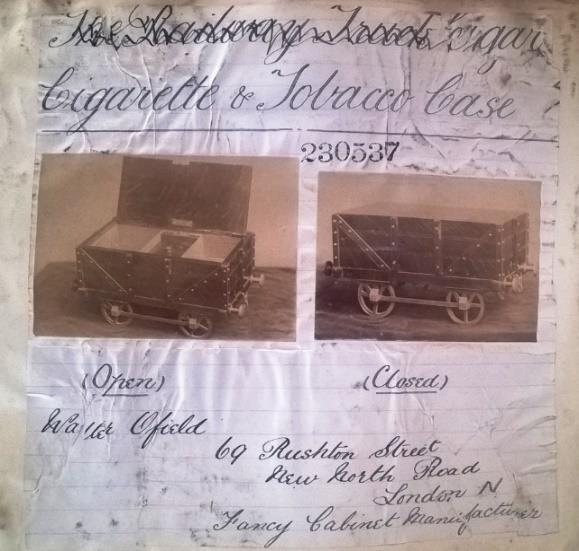 The Railway Truck Cigar
Cigarette & Tobacco Case
230537
(Open)
(Closed)
Walter Ofield
69 Rushton Street
New North Road
London N
Fancy Cabinet Manufacturer